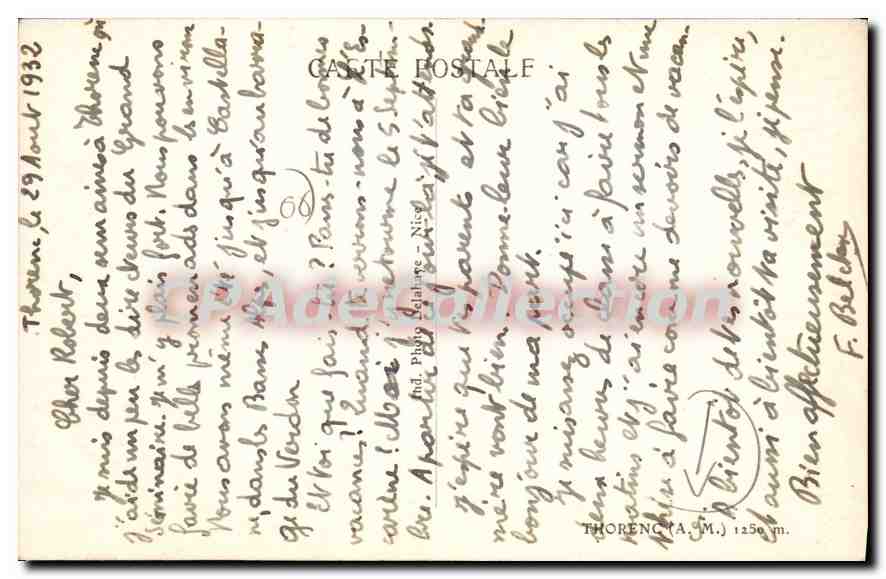 Thorenc, le 29 Aout 1932
Cher Robert,
Je suis depuis deux semaines à Thorenc où
j'aide un peu les directeurs du Grand
Séminaire. Je m'y plais fort. Nous pouvons
faire de belles promenades dans les environs
Nous avons même été jusqu'à Castella-
ne, dans les Basses Alpes, et jusqu'au barra-
ge du Verdon
Et toi que fais-tu? Passes-tu de bonnes
vacances? Quand te verrons-nous à l'Es-
carène? Moi j'y retourne le 5 Septem-
bre. A partir de ce jour là je t'attends.
J'espère que tes parents et ta grand
mère vont bien. Donne-leur bien le
bonjour de ma part.
Je suis assez occupé ici car j'ai
deux heures de classe à faire tous les
matins et j'ai encore un sermon et une
thèse à faire comme devoirs de vacan-
ces.
A bientot de tes nouvelles, je l'espère,
et aussi à bientôt ta visite, je pense.
Bien affectueusement
F. Belckar
CARTE POSTALE
Ind. Photo Delahaye - Nice
THORENC (A.-M.) 1250 m.
66
CPADeCollection.com